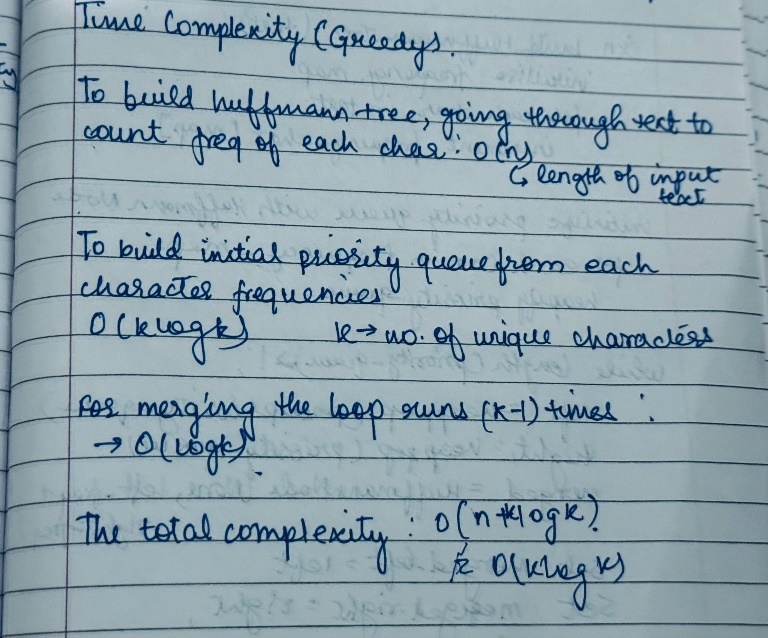 Time Complexity (Greedy).
To build huffmann tree, going through text to
count freq of each char : O(n)
↳ length of input
text
To build initial priority queue from each
character frequencies
O(k log k) k → no. of unique characters
For merging the loop runs (k-1) times :
→ O(log k).
The total complexity : O(n+k log k)
O(k log k)